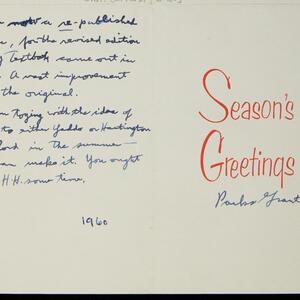 now a re-published
, for the revised edition
Textbook came out in
A vast improvement
the original.
toying with the idea of
to either Yaddo or Huntington
in the summer —
can make it. You ought
H.H. some time.
1960
Season's
Greetings
Parks Grant